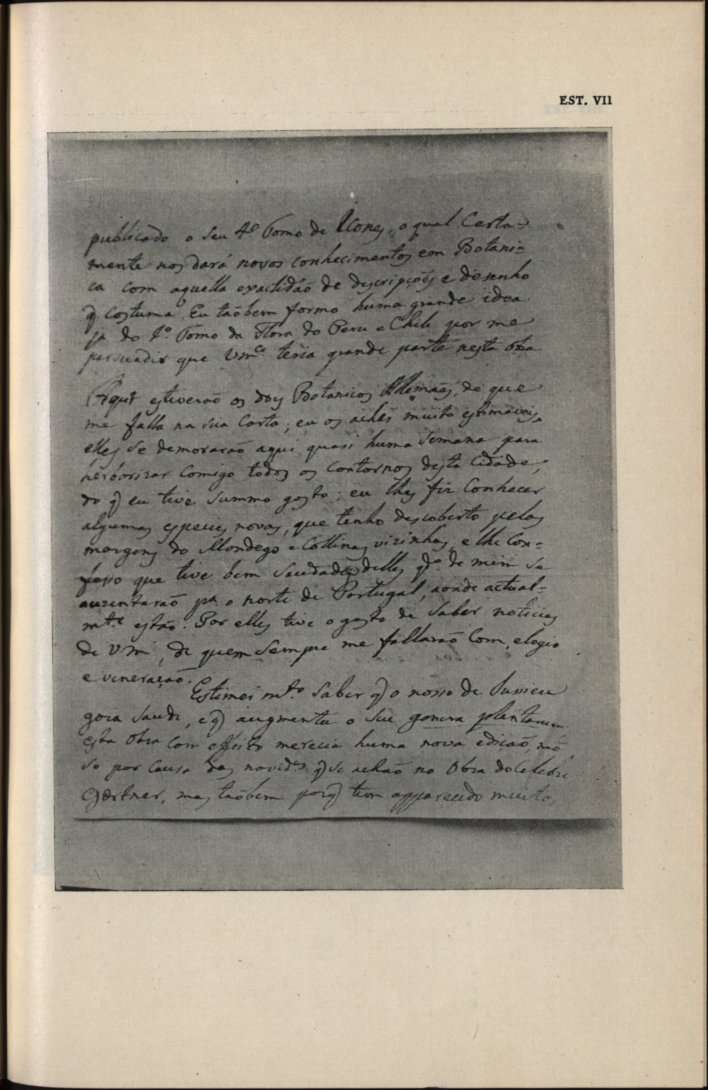 EST. VII
publicado o seu 4º Tomo de Icones, o qual Certa-
mente nos dará novos conhecimentos em Botani-
ca com aquella exactidão de descripções e desenho
q̃ costuma. Eu taõbem formo huma grande idea
já do 1º Tomo da Flora do Peru e Chile por me
persuadir que Vmce teria grande parte nesta obra
Aqui estiverão os dois Botanicos Allemães, de que
me falla na sua Carta; eu os achei muito estimaveis,
elles se demorarão aqui quasi huma semana para
herborizar comigo todos os contornos desta Cidade,
do q̃ eu tive summo gosto: eu lhes fiz conhecer
algumas especies novas, que tenho descoberto pelas
margens do Mondego e Collinas vizinhas, e lhe Con-
fesso que tive bem saudades delles qdo de mim se
auzentarão pa o norte de Portugal, aonde actual-
mte estão. Por elles tive o gosto de saber noticias
de Vm, de quem sempre me fallarão com elogio
e veneração.
Estimei mto saber q̃ o nosso de Jussieu
goza saude, e q̃ augmenta o seu genera plantarum
esta obra com effeito merecia huma nova edição, não
so por causa das novides q̃ se achão na Obra do Celebre
Gærtner, mas taõbem porq̃ tem apparecido muitos